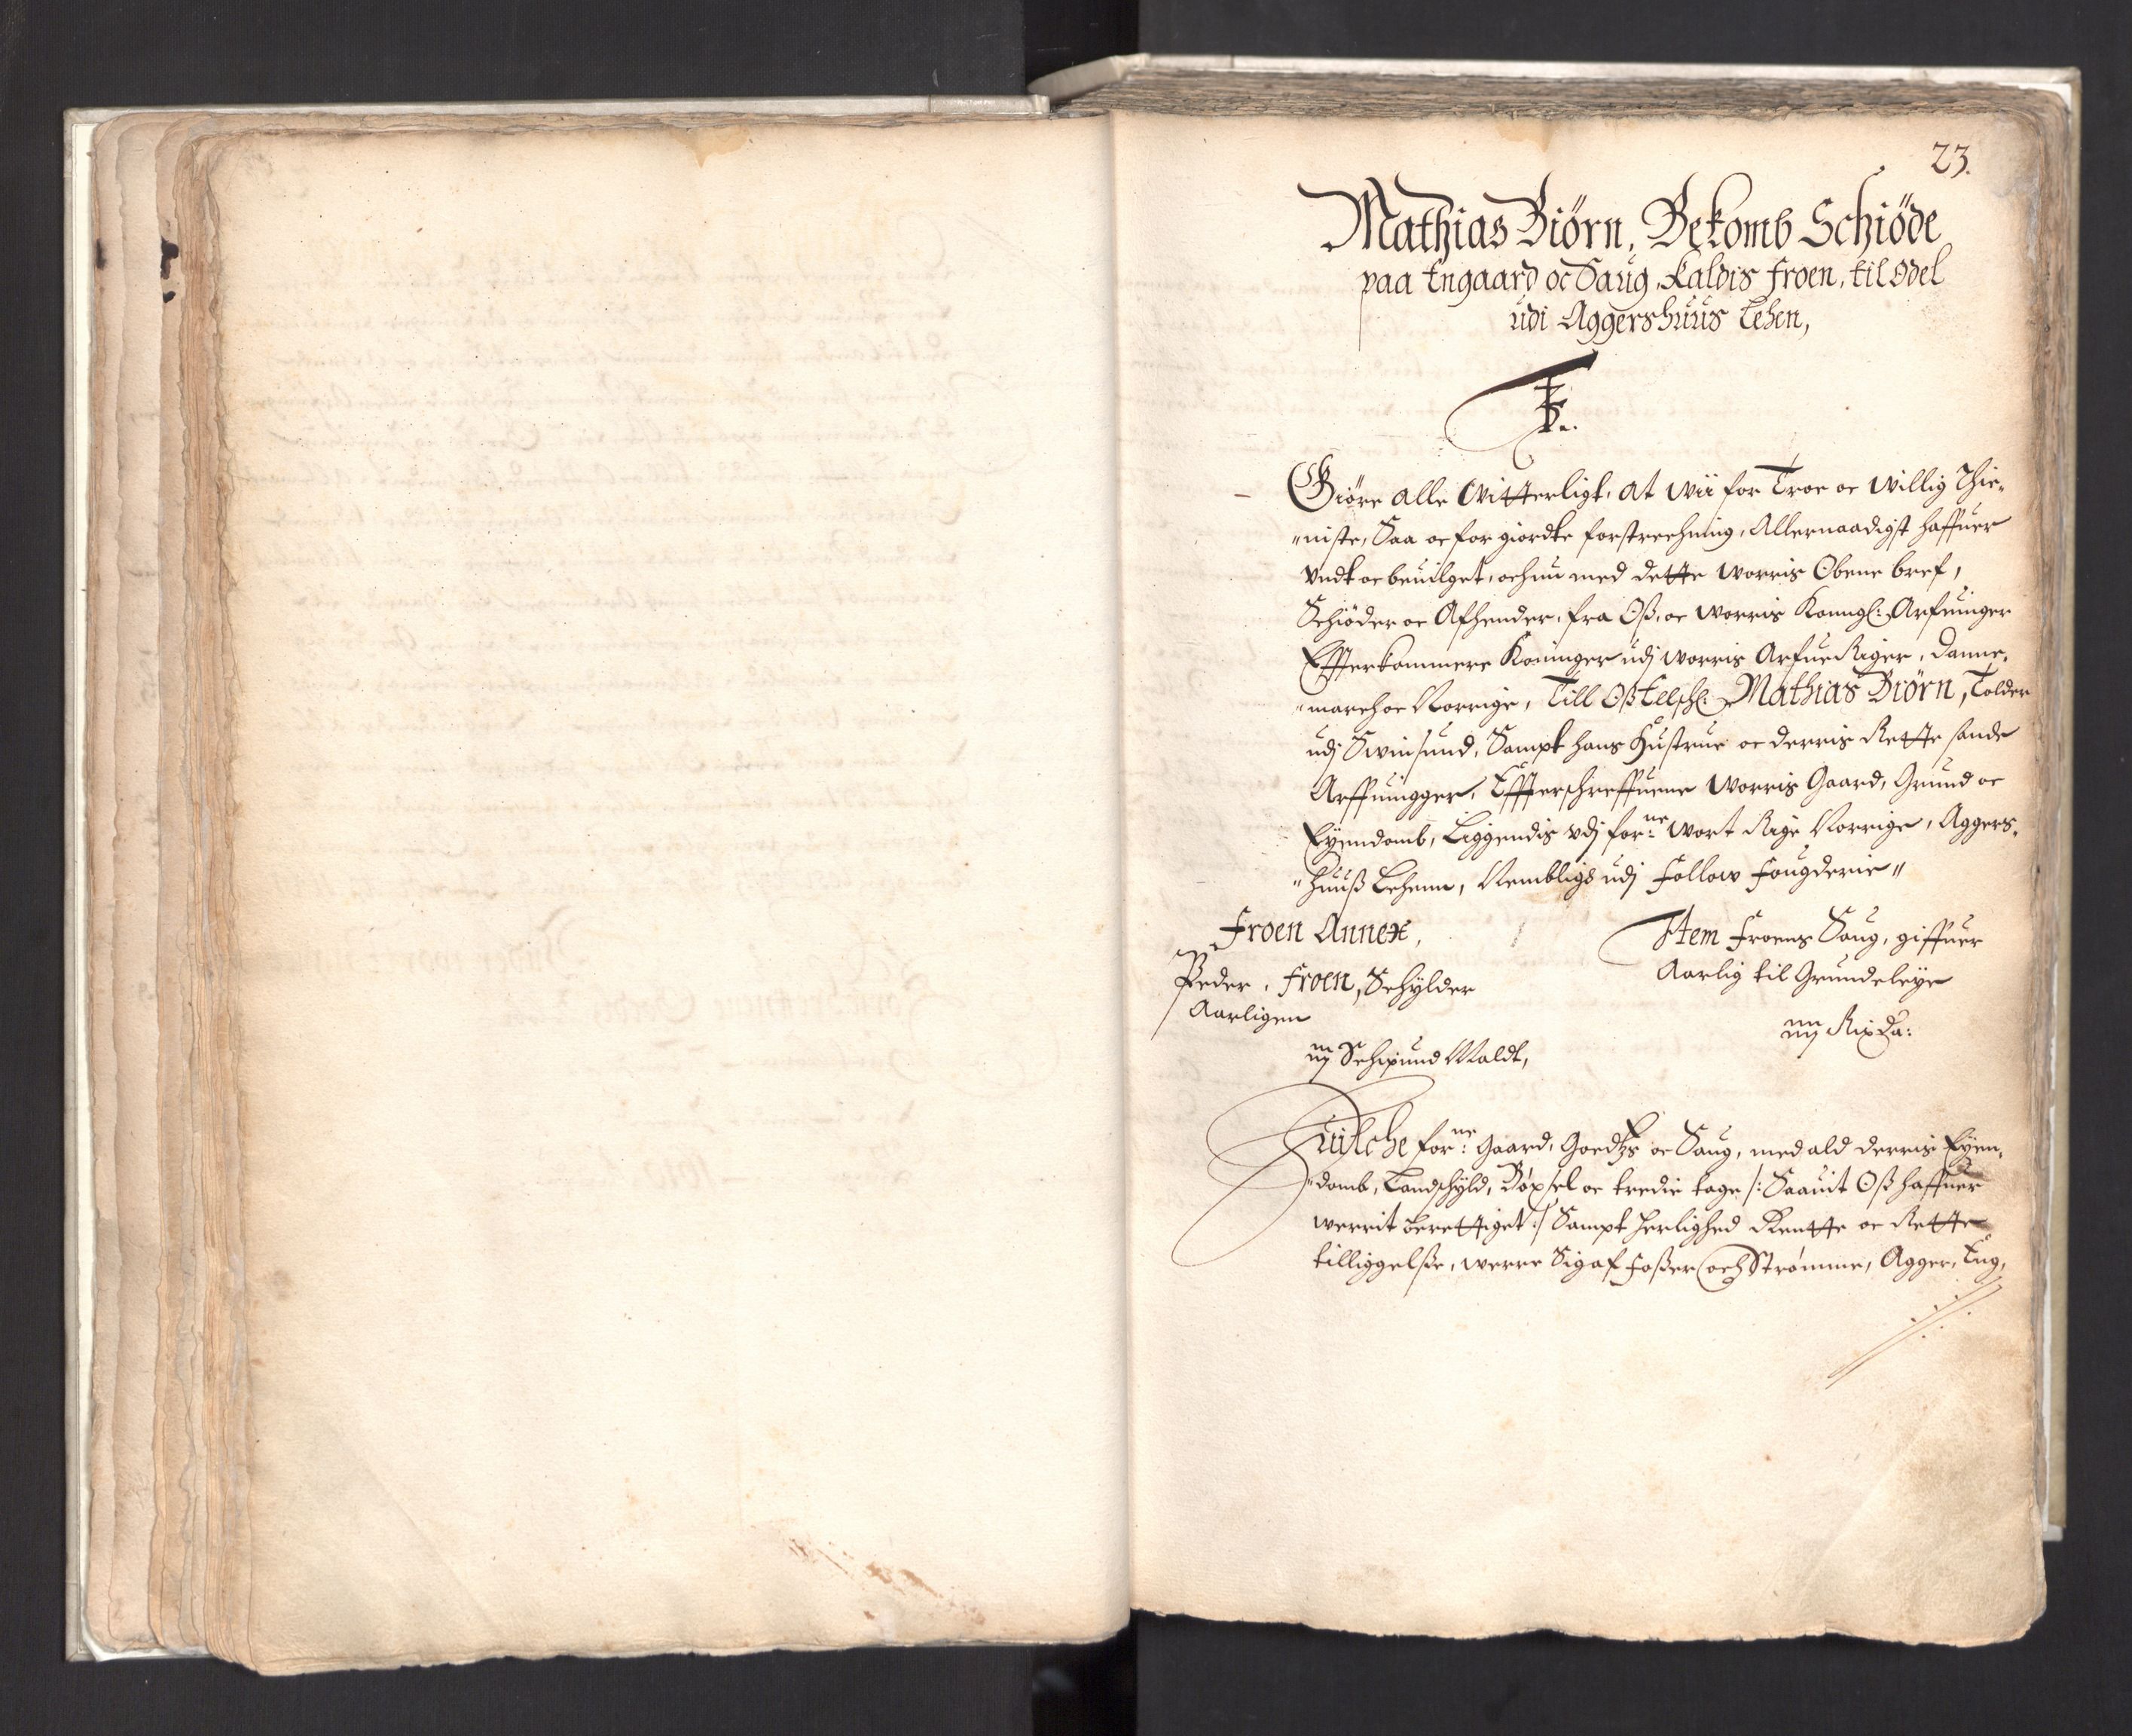 23.
Mathias Biörn, Bekomb Schiöde
paa Engaard oc Saug, Kaldis Froen, til Odel
udi Aggershuus Lehen,
Giöre alle Witterligt, at wii for Troe oc willig Thie-
niste, Saa oc for giordte forstrechning, Allernaadigst haffuer
Undt oc beuilget, oc hermed dette worris Obene bref,
Schiöder oc Afhender, fra Oß, oc worris Konngl: Arfuinger
Effterkommere Konninger udj worris ArfueRiger, Danne-
march oc Norrige, Till Oß Elsschl: Mathias Biörn, Tolder
udj Swinsund, Sampt hans Hustrue oc derris Rette sande
Arffuingger, Effterschreffuene worris Gaard, Grund oc
Eyendomb, Liggendis vdj forne: wort Rige Norrige, Aggers-
huuß Lehenn, Nembligd udj Follow Fougderie
Froen Annex,
Peder Froen, Schylder
Aarligen
iij Schipund Maldt,
Item Froens Saug, giffuer
Aarlig til Grundeleye
iiij Rix Da:
Huilche forne: Gaard, Goedtzs oc Saug, med ald derris Eyen-
domb, Landschyld, Böxsel oc tredie tage /: Saauit Oß haffuer
werrit berettiget :/ Sampt Herlighed Rentte oc Rette
tilliggelße, werre Sig af Foßer och Strömme, Agger, Eng,